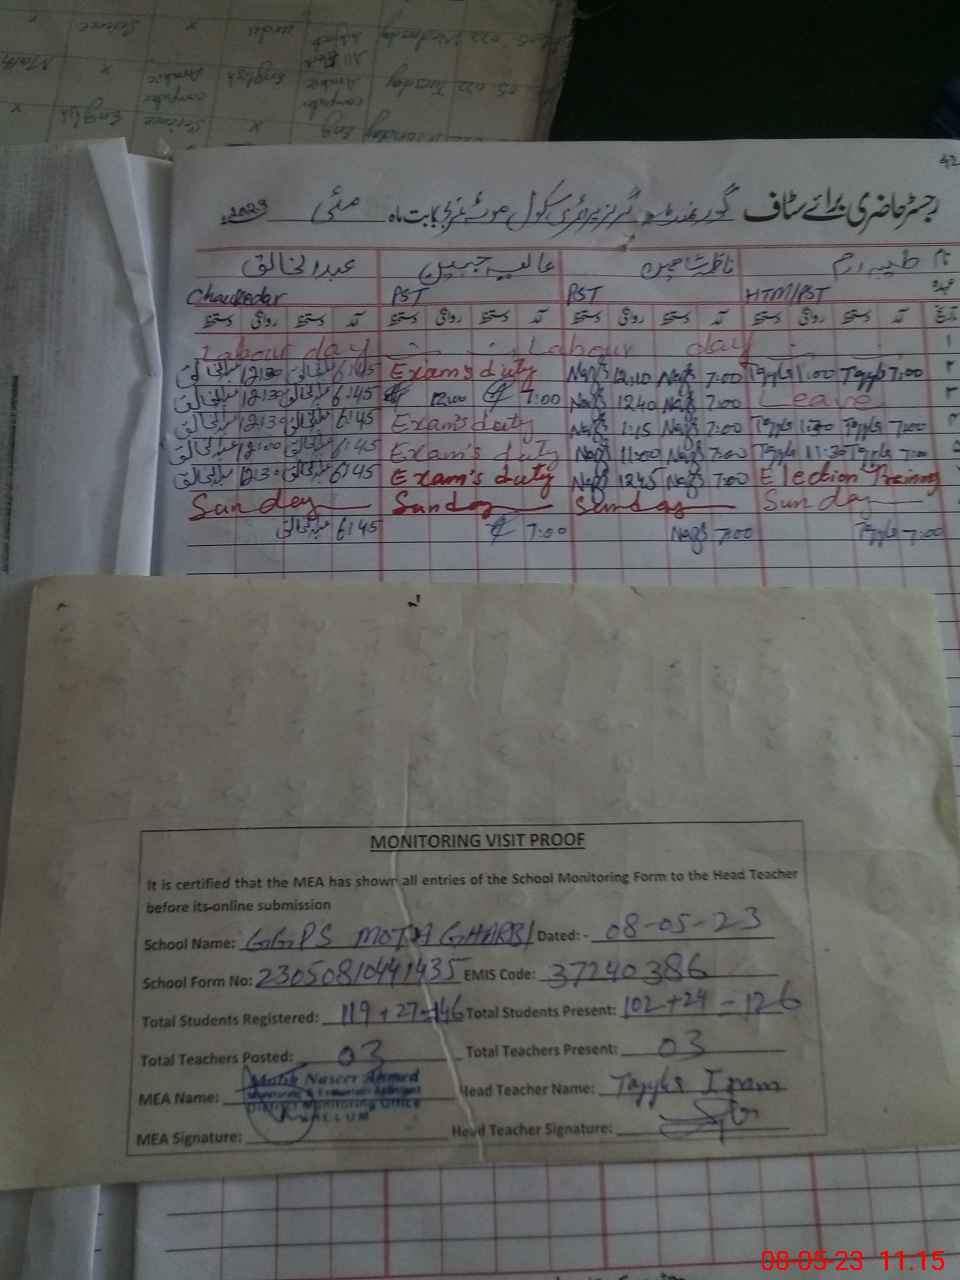 42
رجسٹر حاضری برائے سٹاف گورنمنٹ گرلز پرائمری سکول موٹہ غربی بابت ماہ مئی 2023ء
نام طیبہ ارم ناظرہ شاہین عالیہ جبیں عبدالخالق
عہدہ HTM/PST PST PST Chaukedar
تاریخ آمد دستخط روانگی دستخط آمد دستخط روانگی دستخط آمد دستخط روانگی دستخط آمد دستخط روانگی دستخط
۱ Labour day Labour day
۲ 7:00 Tayyba 1:00 Tayyba 7:00 Nazs 12:10 Nazs Exam's duty 6:45 عبدالخالق 12:30 عبدالخالق
۳ Leave 7:00 Nazs 1240 Nazs 7:00 12:00 6:45 عبدالخالق 12:30 عبدالخالق
7:00 Tayyba 11:30 Tayyba 7:00 Nazs 1:15 Nazs Exam's duty 6:45 عبدالخالق 12:30 عبدالخالق
7:00 Tayyba 11:30 Tayyba 7:00 Nazs 11:00 Nazs Exam's duty 6:45 عبدالخالق 12:00 عبدالخالق
Election Training 7:00 Nazs 1245 Nazs Exam's duty 6:45 عبدالخالق 12:30 عبدالخالق
Sunday Sunday Sunday Sunday
7:00 Tayyba 7:00 Nazs 7:00 6:45 عبدالخالق
MONITORING VISIT PROOF
It is certified that the MEA has shown all entries of the School Monitoring Form to the Head Teacher
before its online submission
School Name: GGPS MOTA GHARBI Dated: - 08-05-23
School Form No: 23050810441435 EMIS Code: 37240386
Total Students Registered: 119+27=146 Total Students Present: 102+24-126
Total Teachers Posted: 03 Total Teachers Present: 03
MEA Name: Malik Naseer Ahmed Head Teacher Name: Tayyba Iram
Monitoring & Evaluation Assistant
District Monitoring Office
JHELUM
MEA Signature: Head Teacher Signature:
08-05-23 11.15